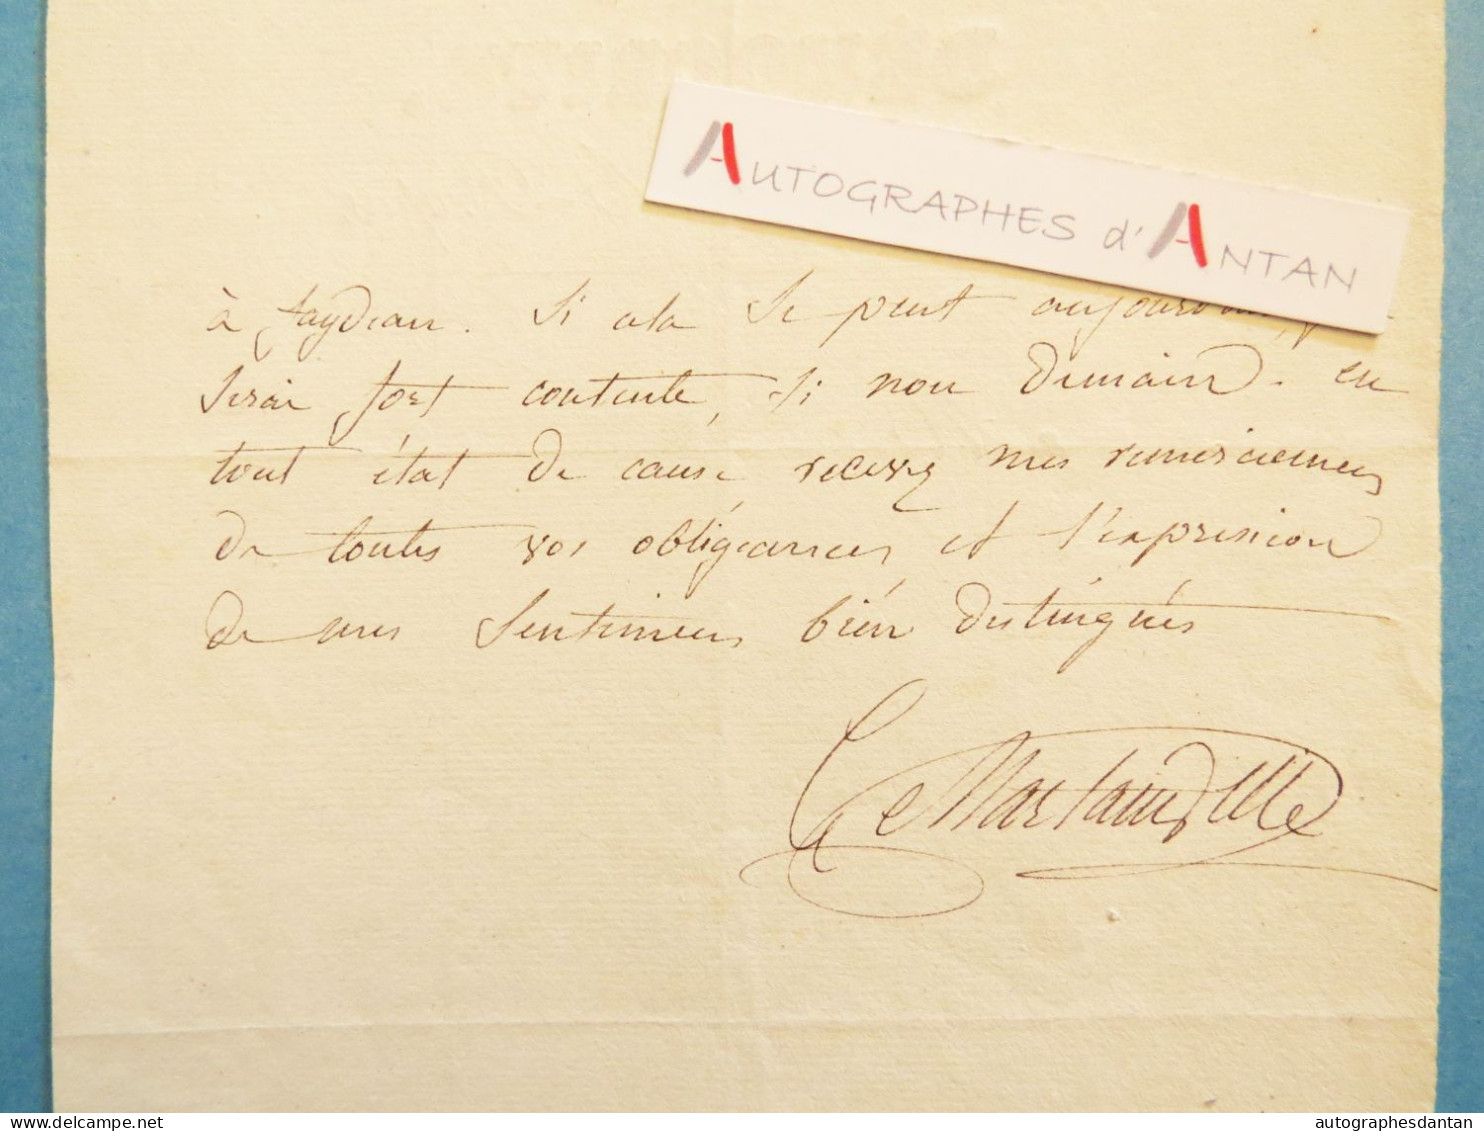 AUTOGRAPHES d'ANTAN
à Jaydian. Si cela se peut aujourd'hui,
serai fort contente, si non demain. en
tout état de cause recevez mes remerciemens
de toutes vos obligeances et l'expression
de mes sentimens bien distingués
Martainville
autographesdantan